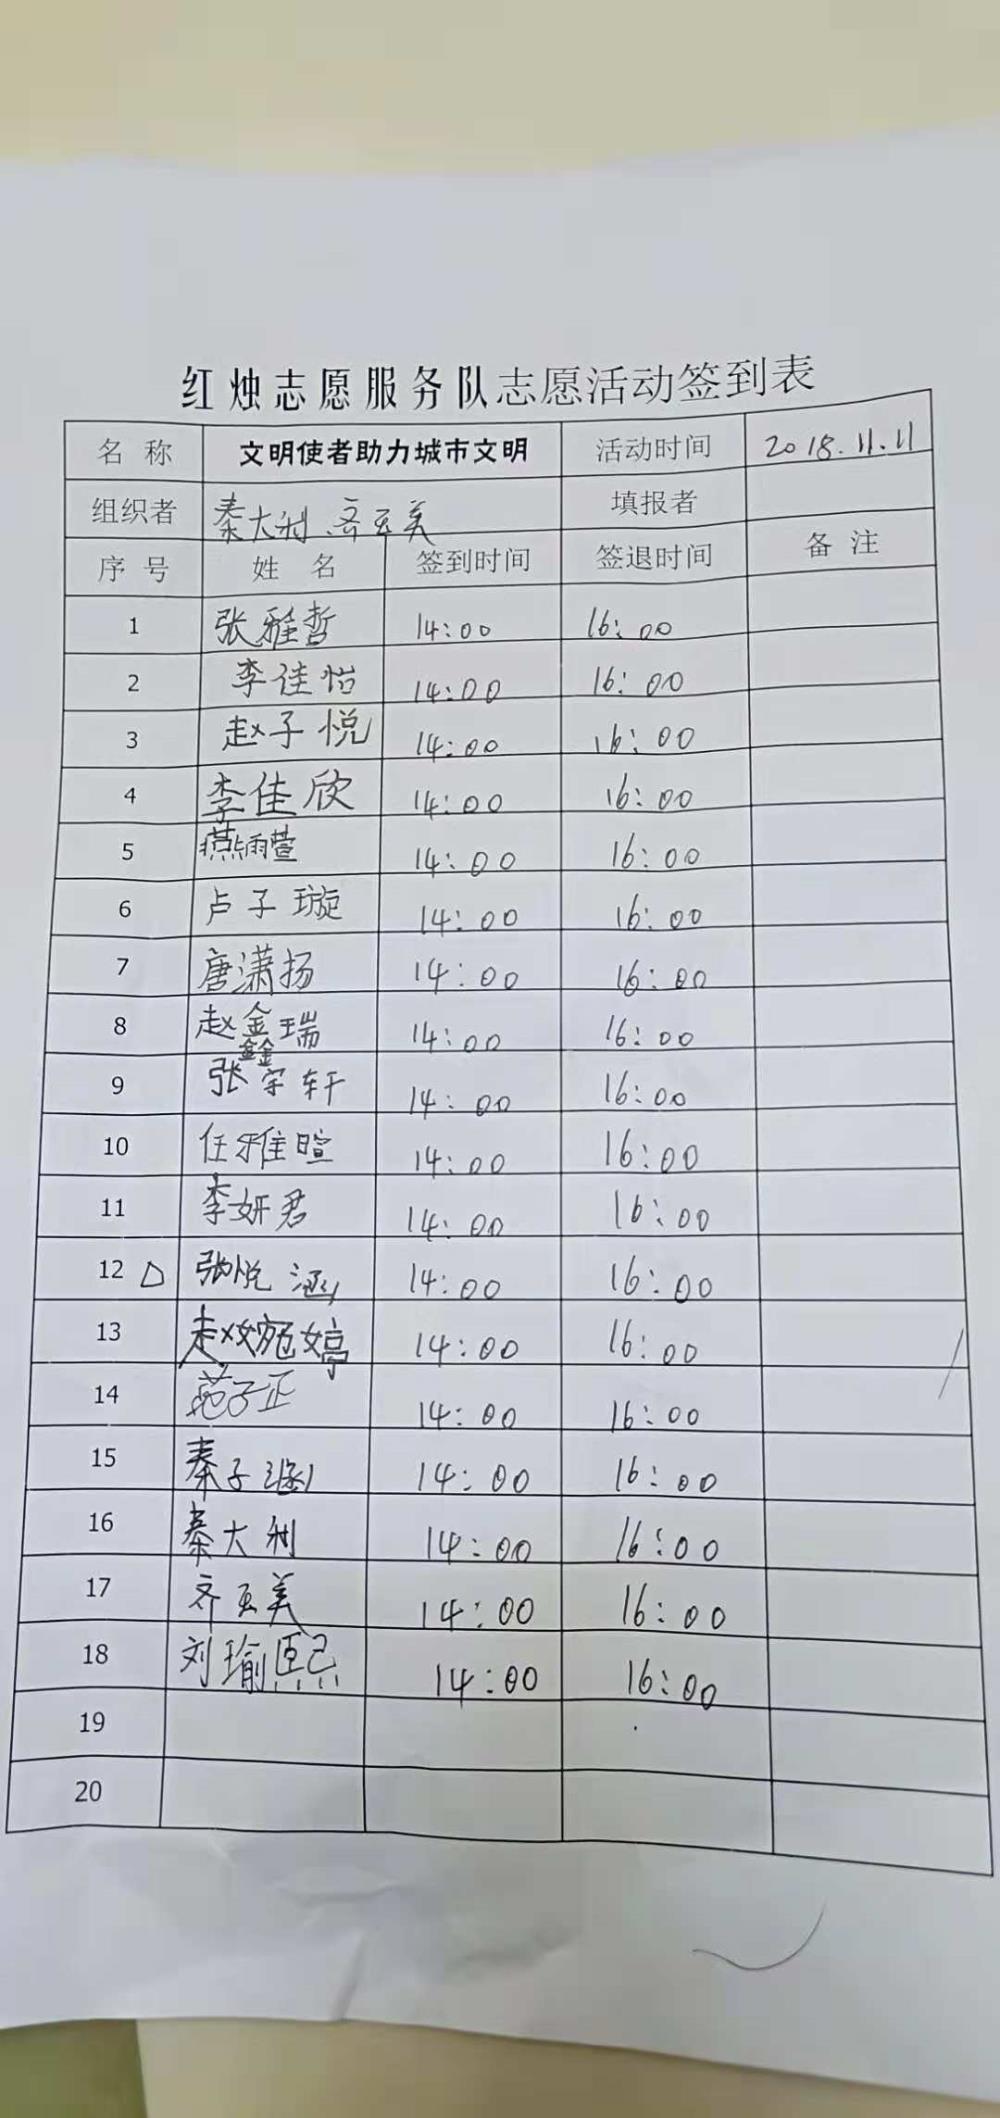 红烛志愿服务队志愿活动签到表
名 称 文明使者助力城市文明 活动时间 2018.11.11
组织者 秦大利、齐亚美 填报者
序 号 姓 名 签到时间 签退时间 备 注
1 张雅哲 14:00 16:00
2 李佳怡 14:00 16:00
3 赵子悦 14:00 16:00
4 李佳欣 14:00 16:00
5 燕雨萱 14:00 16:00
6 卢子璇 14:00 16:00
7 唐潇扬 14:00 16:00
8 赵鑫瑞 14:00 16:00
9 张宇轩 14:00 16:00
10 任雅暄 14:00 16:00
11 李妍君 14:00 16:00
12 △ 张悦涵 14:00 16:00
13 赵婷 14:00 16:00
14 范子正 14:00 16:00
15 秦子涵 14:00 16:00
16 秦大利 14:00 16:00
17 齐亚美 14:00 16:00
18 刘瑜熙 14:00 16:00
19
20